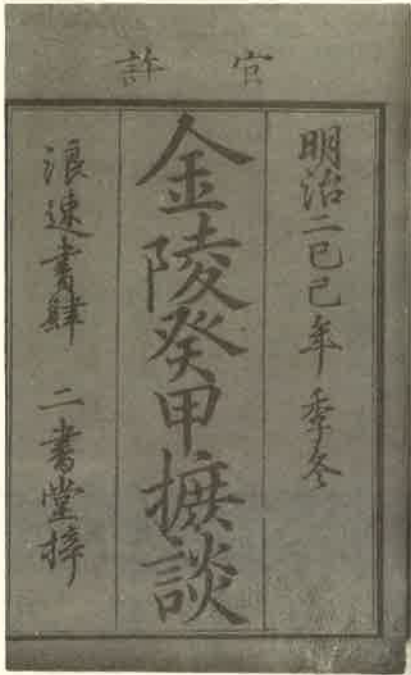 官許
明治二己巳年季冬
金陵癸甲摭談
浪速書肆 二書堂梓